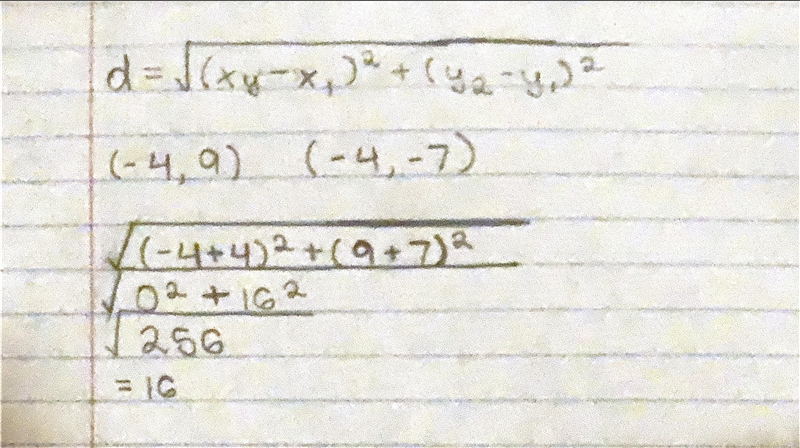 d = √(xy-x₁)² + (y₂-y₁)²
(-4, 9) (-4, -7)
√(-4+4)² + (9+7)²
√0² + 16²
√256
= 16